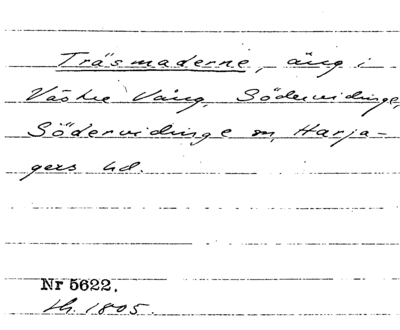 Träsmaderne, äng i
Västre Vång, Södervidinge,
Södervidinge sn, Harja-
gers hd.
Nr 5622.
th. 1805.